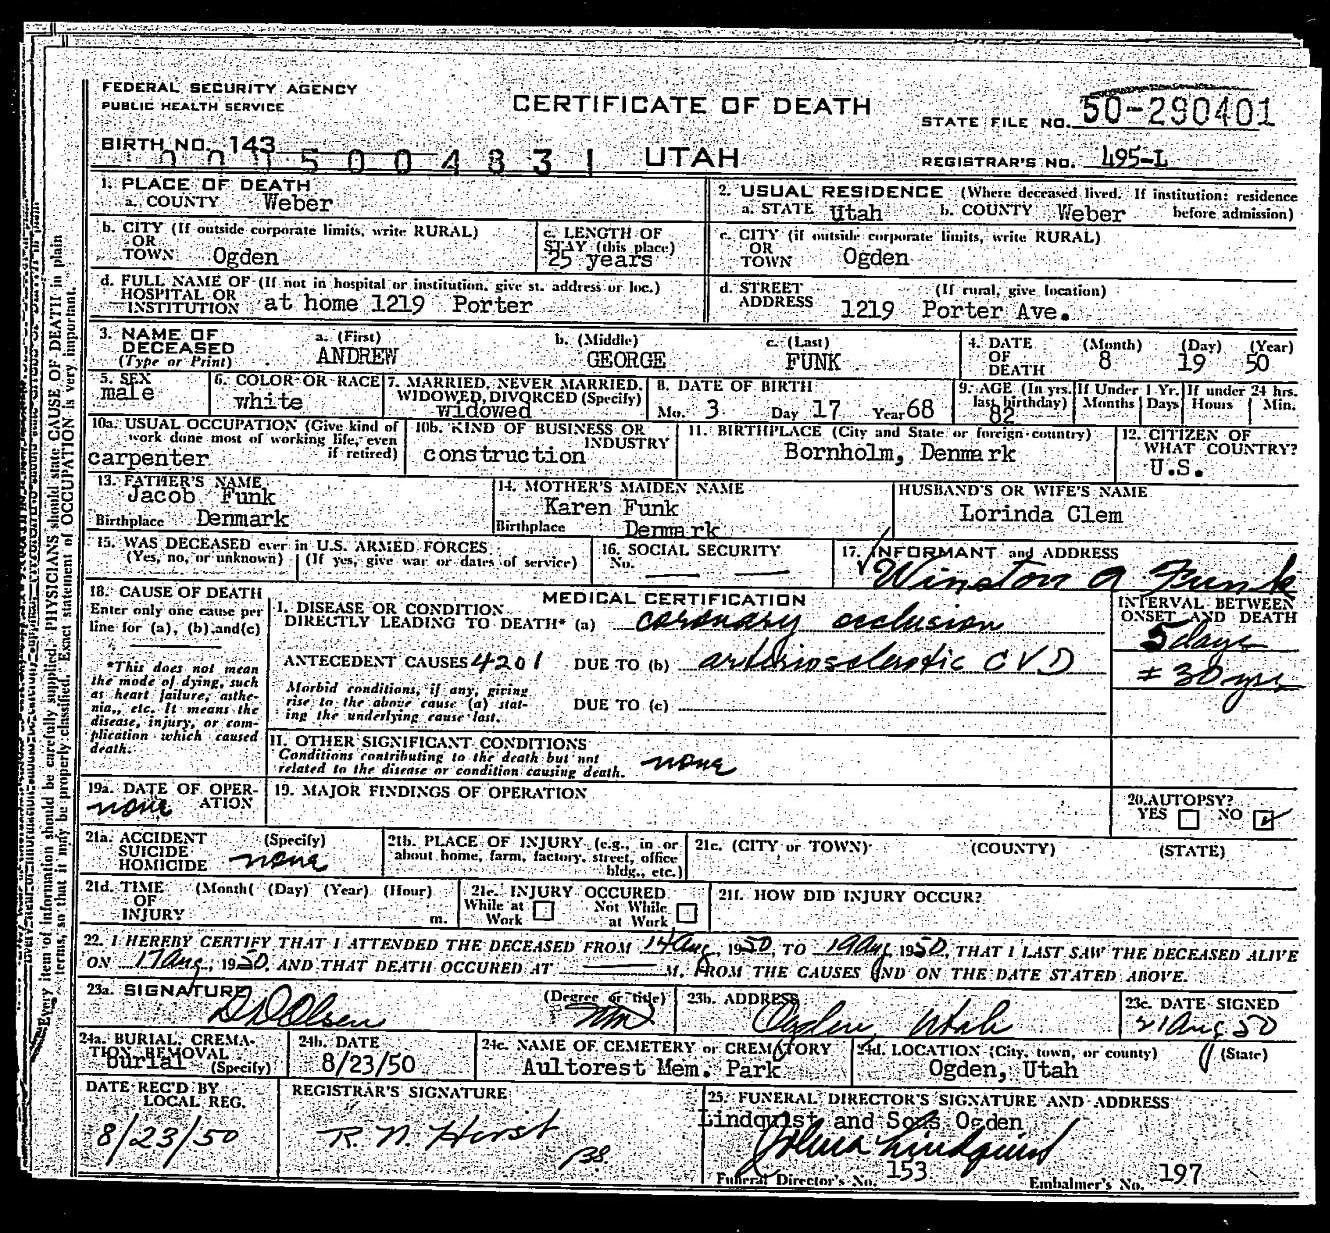 FEDERAL SECURITY AGENCY
PUBLIC HEALTH SERVICE
CERTIFICATE OF DEATH
STATE FILE NO. 50-290401
BIRTH NO. 143
0015004831 UTAH
REGISTRAR'S NO. 495-L
1. PLACE OF DEATH
a. COUNTY Weber
2. USUAL RESIDENCE (Where deceased lived. If institution: residence before admission)
a. STATE Utah b. COUNTY Weber
b. CITY (If outside corporate limits, write RURAL)
OR
TOWN Ogden
c. LENGTH OF
STAY (this place)
25 years
c. CITY (if outside corporate limits, write RURAL)
OR
TOWN Ogden
d. FULL NAME OF (If not in hospital or institution, give st. address or loc.)
HOSPITAL OR
INSTITUTION at home 1219 Porter
d. STREET (If rural, give location)
ADDRESS 1219 Porter Ave.
3. NAME OF
DECEASED
(Type or Print)
a. (First) ANDREW
b. (Middle) GEORGE
c. (Last) FUNK
4. DATE
OF
DEATH
(Month) (Day) (Year)
8 19 50
5. SEX
male
6. COLOR OR RACE
white
7. MARRIED, NEVER MARRIED,
WIDOWED, DIVORCED (Specify)
widowed
8. DATE OF BIRTH
Mo. 3 Day 17 Year 68
9. AGE (In yrs.
last birthday)
82
If Under 1 Yr.
Months Days
If under 24 hrs.
Hours Min.
10a. USUAL OCCUPATION (Give kind of
work done most of working life, even
if retired)
carpenter
10b. KIND OF BUSINESS OR
INDUSTRY
construction
11. BIRTHPLACE (City and State or foreign country)
Bornholm, Denmark
12. CITIZEN OF
WHAT COUNTRY?
U.S.
13. FATHER'S NAME
Jacob Funk
Birthplace Denmark
14. MOTHER'S MAIDEN NAME
Karen Funk
Birthplace Denmark
HUSBAND'S OR WIFE'S NAME
Lorinda Clem
15. WAS DECEASED ever in U.S. ARMED FORCES
(Yes, no, or unknown) (If yes, give war or dates of service)
16. SOCIAL SECURITY
No.
17. INFORMANT and ADDRESS
Winston A Funk
18. CAUSE OF DEATH
Enter only one cause per
line for (a), (b), and (c)
*This does not mean
the mode of dying, such
as heart failure, asthe-
nia, etc. It means the
disease, injury, or com-
plication which caused
death.
MEDICAL CERTIFICATION
I. DISEASE OR CONDITION
DIRECTLY LEADING TO DEATH* (a) coronary occlusion
INTERVAL BETWEEN
ONSET AND DEATH
5 days
ANTECEDENT CAUSES 4201 DUE TO (b) arteriosclerotic CVD
± 30 yrs
Morbid conditions, if any, giving
rise to the above cause (a) stat-
ing the underlying cause last.
DUE TO (c)
II. OTHER SIGNIFICANT CONDITIONS
Conditions contributing to the death but not
related to the disease or condition causing death. none
19a. DATE OF OPER-
ATION
none
19. MAJOR FINDINGS OF OPERATION
20. AUTOPSY?
YES NO
21a. ACCIDENT (Specify)
SUICIDE
HOMICIDE none
21b. PLACE OF INJURY (e.g., in or
about home, farm, factory, street, office
bldg., etc.)
21c. (CITY or TOWN) (COUNTY) (STATE)
21d. TIME (Month) (Day) (Year) (Hour)
OF
INJURY m.
21e. INJURY OCCURED
While at Work Not While at Work
21f. HOW DID INJURY OCCUR?
22. I HEREBY CERTIFY THAT I ATTENDED THE DECEASED FROM 14 Aug, 1950, TO 19 Aug 1950, THAT I LAST SAW THE DECEASED ALIVE
ON 17 Aug., 1950, AND THAT DEATH OCCURED AT M. FROM THE CAUSES AND ON THE DATE STATED ABOVE.
23a. SIGNATURE (Degree or title)
D D Olsen MD
23b. ADDRESS
Ogden, Utah
23c. DATE SIGNED
21 Aug 50
24a. BURIAL, CREMA-
TION, REMOVAL
(Specify)
burial
24b. DATE
8/23/50
24c. NAME OF CEMETERY or CREMATORY
Aultorest Mem. Park
24d. LOCATION (City, town, or county) (State)
Ogden, Utah
DATE REC'D BY
LOCAL REG.
8/23/50
REGISTRAR'S SIGNATURE
R. N. Hirst
25. FUNERAL DIRECTOR'S SIGNATURE AND ADDRESS
Lindquist and Sons Ogden
Funeral Director's No. 153
Embalmer's No. 197
Every item of information should be carefully supplied. PHYSICIANS should state CAUSE OF DEATH in plain
terms, so that it may be properly classified. Exact statement of OCCUPATION is very important.